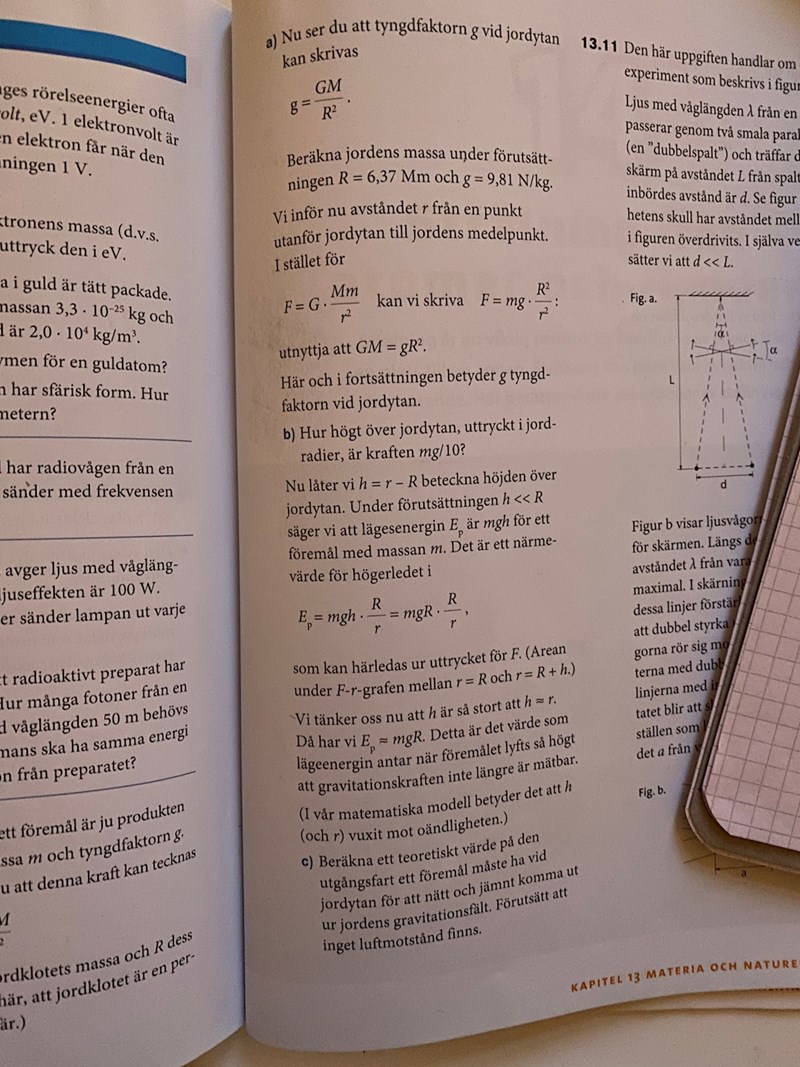 ges rörelseenergier ofta
olt, eV. 1 elektronvolt är
n elektron får när den
ningen 1 V.
ktronens massa (d.v.s.
uttryck den i eV.
a i guld är tätt packade.
massan 3,3 · 10⁻²⁵ kg och
är 2,0 · 10⁴ kg/m³.
ymen för en guldatom?
har sfärisk form. Hur
metern?
har radiovågen från en
sänder med frekvensen
avger ljus med vågläng-
juseffekten är 100 W.
er sänder lampan ut varje
tt radioaktivt preparat har
Hur många fotoner från en
d våglängden 50 m behövs
mans ska ha samma energi
on från preparatet?
ett föremål är ju produkten
ssa m och tyngdfaktorn g.
u att denna kraft kan tecknas
M
2
ordklotets massa och R dess
här, att jordklotet är en per-
är.)
a) Nu ser du att tyngdfaktorn g vid jordytan
kan skrivas
g = GM/R².
Beräkna jordens massa under förutsätt-
ningen R = 6,37 Mm och g = 9,81 N/kg.
Vi inför nu avståndet r från en punkt
utanför jordytan till jordens medelpunkt.
I stället för
F = G · Mm/r² kan vi skriva F = mg · R²/r² :
utnyttja att GM = gR².
Här och i fortsättningen betyder g tyngd-
faktorn vid jordytan.
b) Hur högt över jordytan, uttryckt i jord-
radier, är kraften mg/10?
Nu låter vi h = r – R beteckna höjden över
jordytan. Under förutsättningen h << R
säger vi att lägesenergin Eₚ är mgh för ett
föremål med massan m. Det är ett närme-
värde för högerledet i
Eₚ = mgh · R/r = mgR · R/r ,
som kan härledas ur uttrycket för F. (Arean
under F-r-grafen mellan r = R och r = R + h.)
Vi tänker oss nu att h är så stort att h ≈ r.
Då har vi Eₚ ≈ mgR. Detta är det värde som
lägeenergin antar när föremålet lyfts så högt
att gravitationskraften inte längre är mätbar.
(I vår matematiska modell betyder det att h
(och r) vuxit mot oändligheten.)
c) Beräkna ett teoretiskt värde på den
utgångsfart ett föremål måste ha vid
jordytan för att nätt och jämnt komma ut
ur jordens gravitationsfält. Förutsätt att
inget luftmotstånd finns.
13.11 Den här uppgiften handlar om
experiment som beskrivs i figur
Ljus med våglängden λ från en
passerar genom två smala paral
(en ”dubbelspalt”) och träffar
skärm på avståndet L från spalt
inbördes avstånd är d. Se figur
hetens skull har avståndet mell
i figuren överdrivits. I själva ve
sätter vi att d << L.
Fig. a.
α
α
L
d
Figur b visar ljusvågor
för skärmen. Längs
avståndet λ från vara
maximal. I skärning
dessa linjer förstär
att dubbel styrka
gorna rör sig mo
terna med dubb
linjerna med
tatet blir att s
ställen som
det a från
Fig. b.
a
KAPITEL 13 MATERIA OCH NATURE